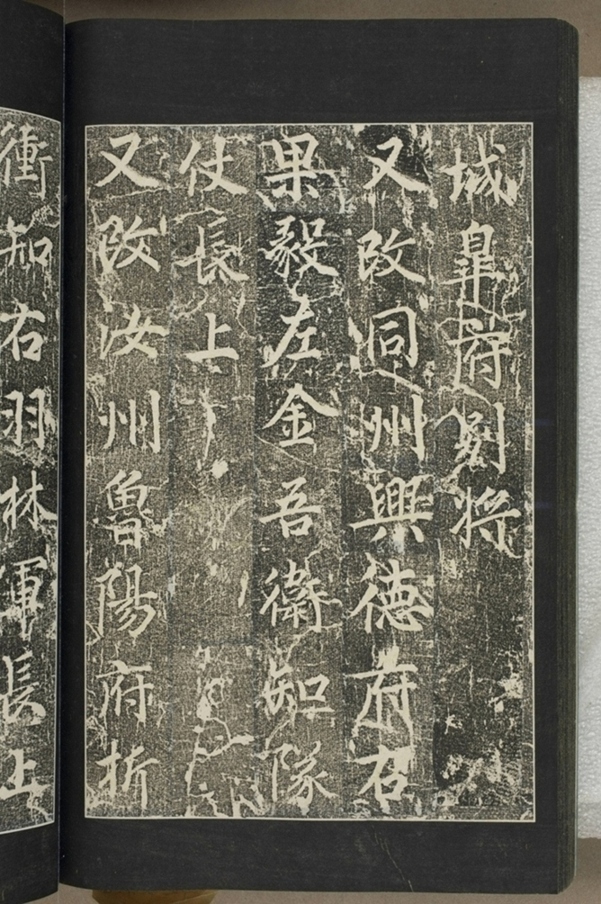 城皐府別将
又改同州興徳府右
果毅左金吾衛知隊
仗長上
又改汝州魯陽府折
衝知右羽林軍長上